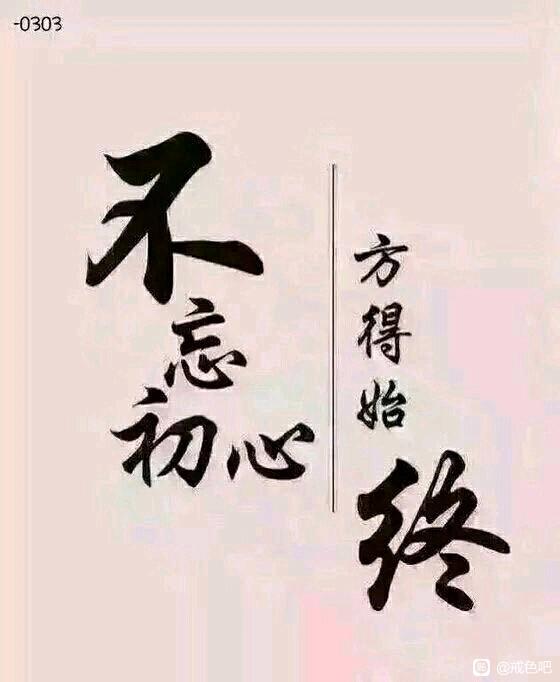 -0303
不忘初心
方得始终
@戒色吧